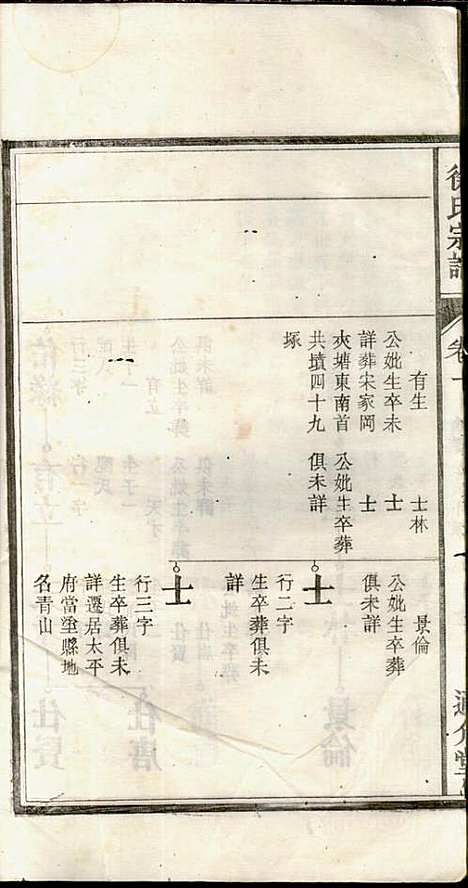 徐氏宗譜
卷一
有生
公妣生卒未
詳葬宋家岡
夾塘東南首
共墳四十九
塚
士林
公妣生卒葬
俱未詳
士
士
景倫
公妣生卒葬
俱未詳
士
行二字
生卒葬俱未
詳
士
行三字
生卒葬俱未
詳遷居太平
府當塗縣地
名青山